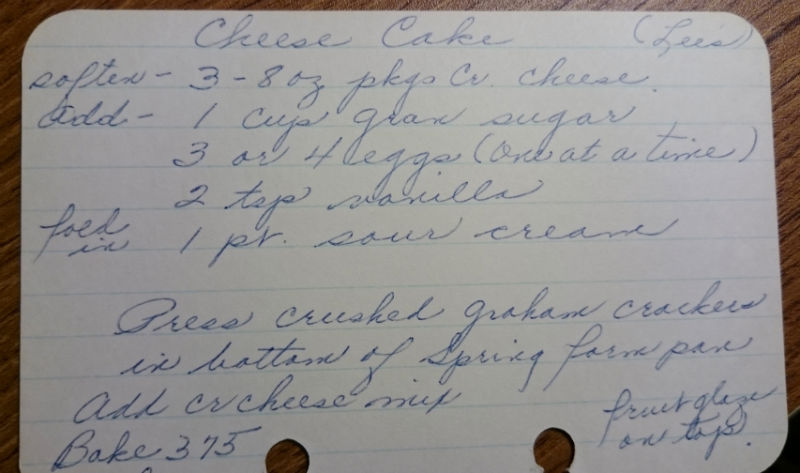 Cheese Cake (Lee's)
soften - 3 - 8 oz pkgs Cr. cheese.
add - 1 cup gran sugar
3 or 4 eggs (one at a time)
2 tsp vanilla
fold in 1 pt. sour cream
Press crushed graham crackers
in bottom of Spring form pan
Add cr cheese mix
Bake 375
fruit glaze
on top.